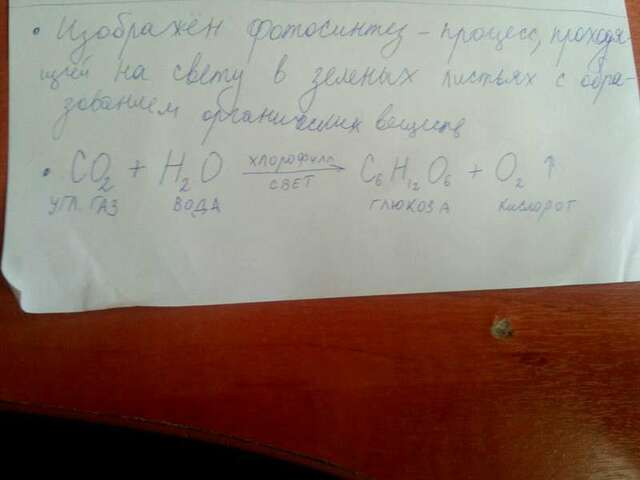 • Изображён фотосинтез – процесс, проходя-
щий на свету в зеленых листьях с обра-
зованием органических веществ
• CO₂ + H₂O хлорофилл СВЕТ → C₆H₁₂O₆ + O₂ ↑
УГЛ. ГАЗ ВОДА ГЛЮКОЗА КИСЛОРОТ